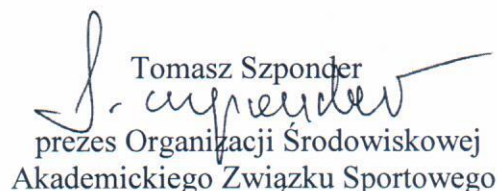 Tomasz Szponder
prezes Organizacji Środowiskowej
Akademickiego Związku Sportowego